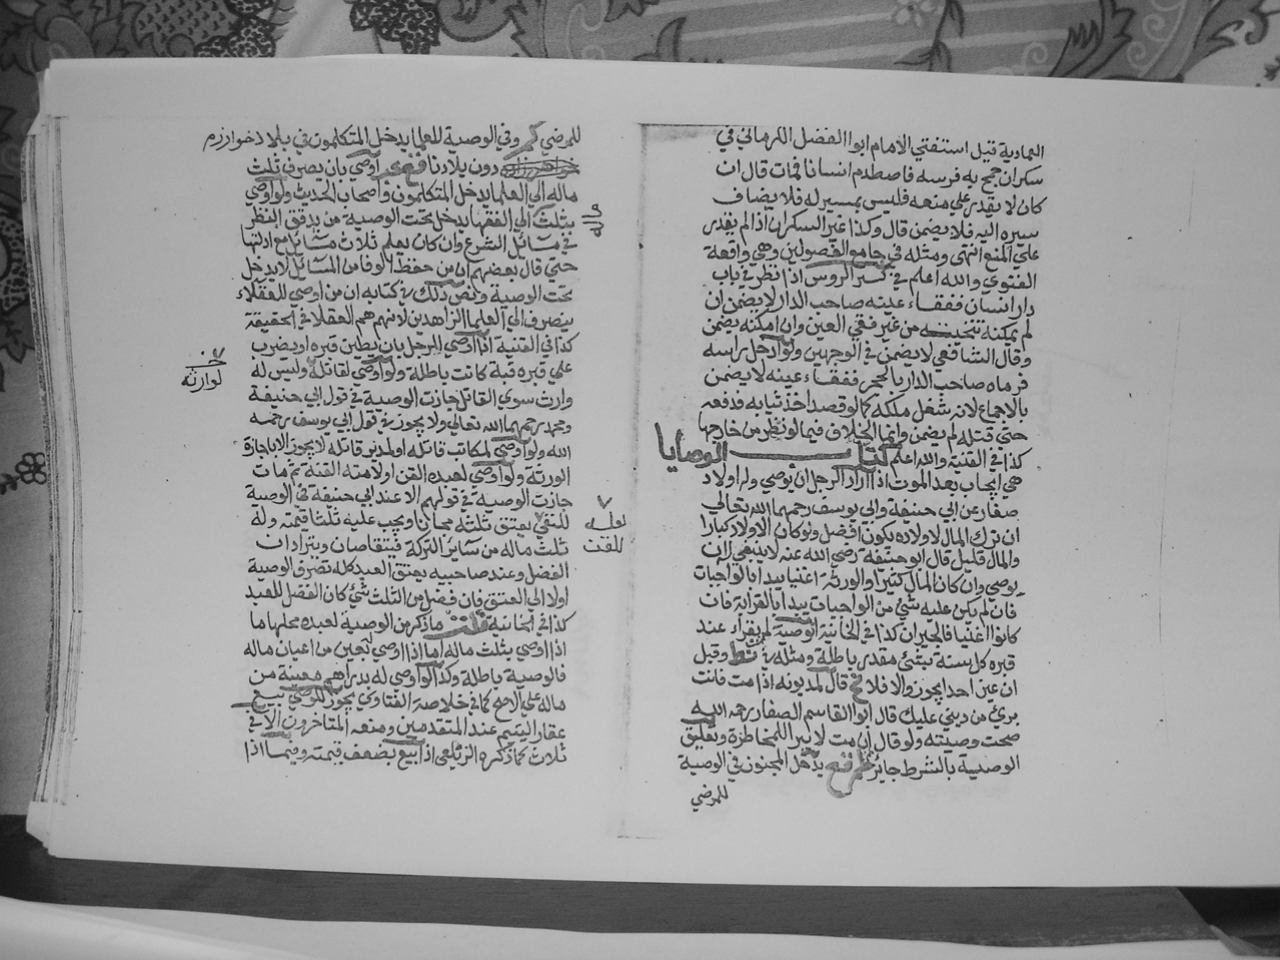 العمادية قيل استفتي الامام ابوا الفضل الكرماني في
سكران جمح به فرسه فاصطدم انسانا فمات قال ان
كان لا يقدر علي منعه فليس بمسير له فلا يضاف
سيره اليه فلا يضمن قال وكذا غير السكران اذا لم يقدر
علي المنع انتهى ومثله في جامع الفصولين وهي واقعة
الفتوي والله اعلم في كسر الروس اذا نظر في باب
دار انسان ففقاء عينه صاحب الدار لا يضمن ان
لم يمكنه تنحيته من غير فقي العين وان امكنه يضمن
وقال الشافعي لا يضمن في الوجهين ولو ادخل راسه
فرماه صاحب الدار بالحجر ففقاء عينه لا يضمن
بالاجماع لانه شغل ملكه كما لو قصد اخذ ثيابه فدفعه
حتي قتله لم يضمن وانما الخلاف فيما لو نظر من خارجها
كذا في القنية والله اعلم كتاب الوصايا
هي ايجاب بعد الموت اذا اراد الرجل ان يوصي وله اولاد
صغار عن ابي حنيفة وابي يوسف رحمهما الله تعالي
ان ترك المال لاولاده يكون افضل ولو كان الاولاد كبارا
والمال قليل قال ابو حنيفة رضي الله عنه لا ينبغي ان
يوصي وان كان المال كثيرا والورثة اغنيا يبدا بالواجبات
فان لم يكن عليه شئ من الواجبات يبدا بالقرابة فان
كانوا اغنيا فالجيران كذا في الخانية اوصية لم يقراء عند
قبره كل سنة بشئ مقدر باطلة ومثله في وقيل
ان عين احدا يجوز والا فلا قال لمديونه اذا مت فانت
برئ من ديني عليك قال ابوا القاسم الصفار رحمه الله
صحت وصيته ولو قال ان مت لا يبرا للمخاطرة وتعليق
الوصية بالشرط جايز يدخل المجنون في الوصية
للمرضي
للمرضي وفي الوصية للعلما يدخل المتكلمون في بلاد خوارزم
دون بلادنا اوصي بان يصرف ثلث
ماله الي العلما يدخل المتكلمون واصحاب الحديث ولو اوصي
بثلث الي الفقها يدخل تحت الوصية من يدقق النظر
في مسائل الشرع وان كان يعلم ثلاث مسائل مع ادلتها
حتي قال بعضهم ان من حفظ الوفا من المسائل لا يدخل
تحت الوصية ونص ذلك في كتابه ان من اوصي للعقلاء
ينصرف الي العلما الزاهدين لانهم هم العقلا في الحقيقة
كذا في القنية اذا اوصي الرجل بان يطين قبره او يضرب
علي قبره قبة كانت باطلة ولو اوصي لقاتله وليس له
وارث سوي القاتل جازت الوصية في قول ابي حنيفة
ومحمد رحمهما الله تعالي ولا يجوز في قول ابي يوسف رحمه
الله ولو اوصي لمكاتب قاتله او لمدبر قاتله لا يجوز الا باجازة
الورثة ولو اوصي لعبده القن او لامته القنة ثم مات
جازت الوصية في قولهم الا عند ابي حنيفة في الوصية
للقن يعتق ثلثه مجانا ويجب عليه ثلثا قيمته وله
ثلث ماله من سائر التركة فيتقاصان ويترادان
الفضل وعند صاحبيه يعتق العبد كله تصرف الوصية
اولا الي العتق فان فضل من الثلث شئ كان الفضل للعبد
كذا في الخانية قلت ما ذكر من الوصية لعبده محلها ما
اذا اوصي بثلث ماله اما اذا اوصي بعين من اعيان ماله
فالوصية باطلة وكذا لو اوصي له بدراهم معينة من
ماله علي الاصح كما في خلاصة الفتاوي يجوز للوصي بيع
عقار اليتيم عند المتقدمين ومنعه المتاخرون الا في
ثلاث كما ذكره الزيلعي اذا بيع بضعف قيمته وفيما اذا
لوارثه
لعله
للقن